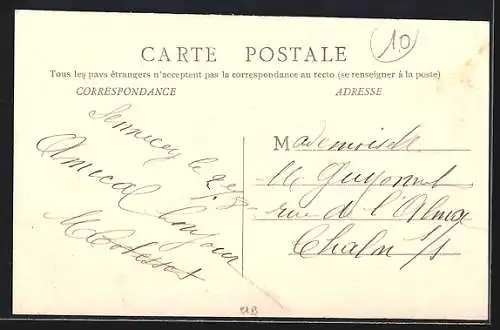 10
CARTE POSTALE
Tous les pays étrangers n'acceptent pas la correspondance au recto (se renseigner à la poste)
CORRESPONDANCE
ADRESSE
Sennecey le
Amical bonjour
Mademoiselle
M Guyonnet
rue de l'Alma
Chalon s/s